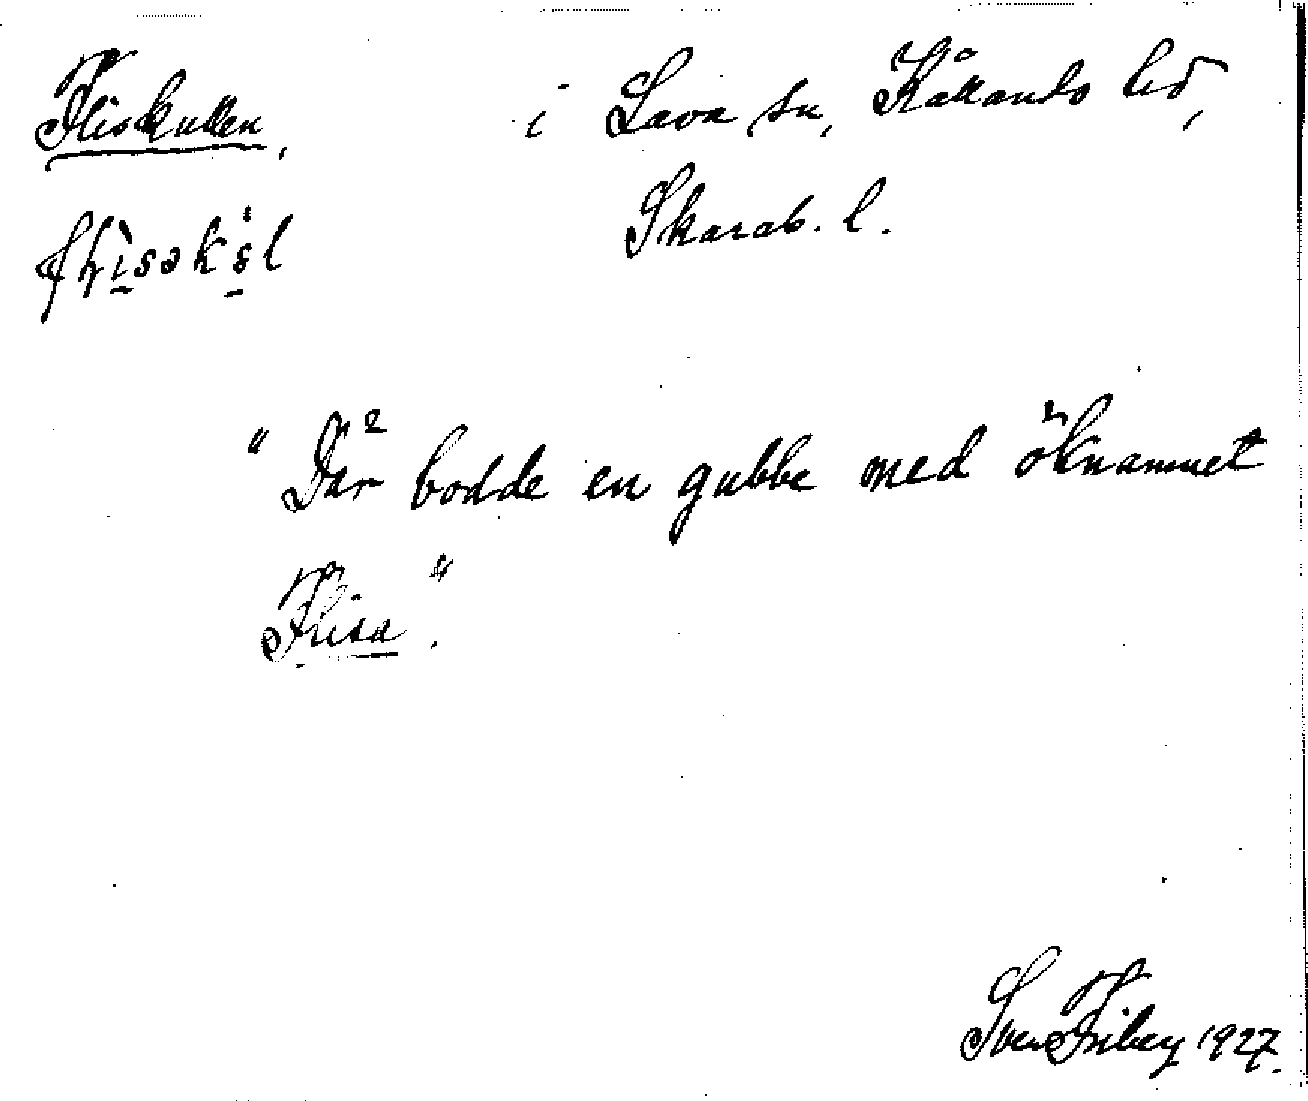 Fliskullen, i Lava sn, Kållands hd,
Skarab. l.
"Där bodde en gubbe med öknamnet
Flisa."
Sven Friberg 1927.